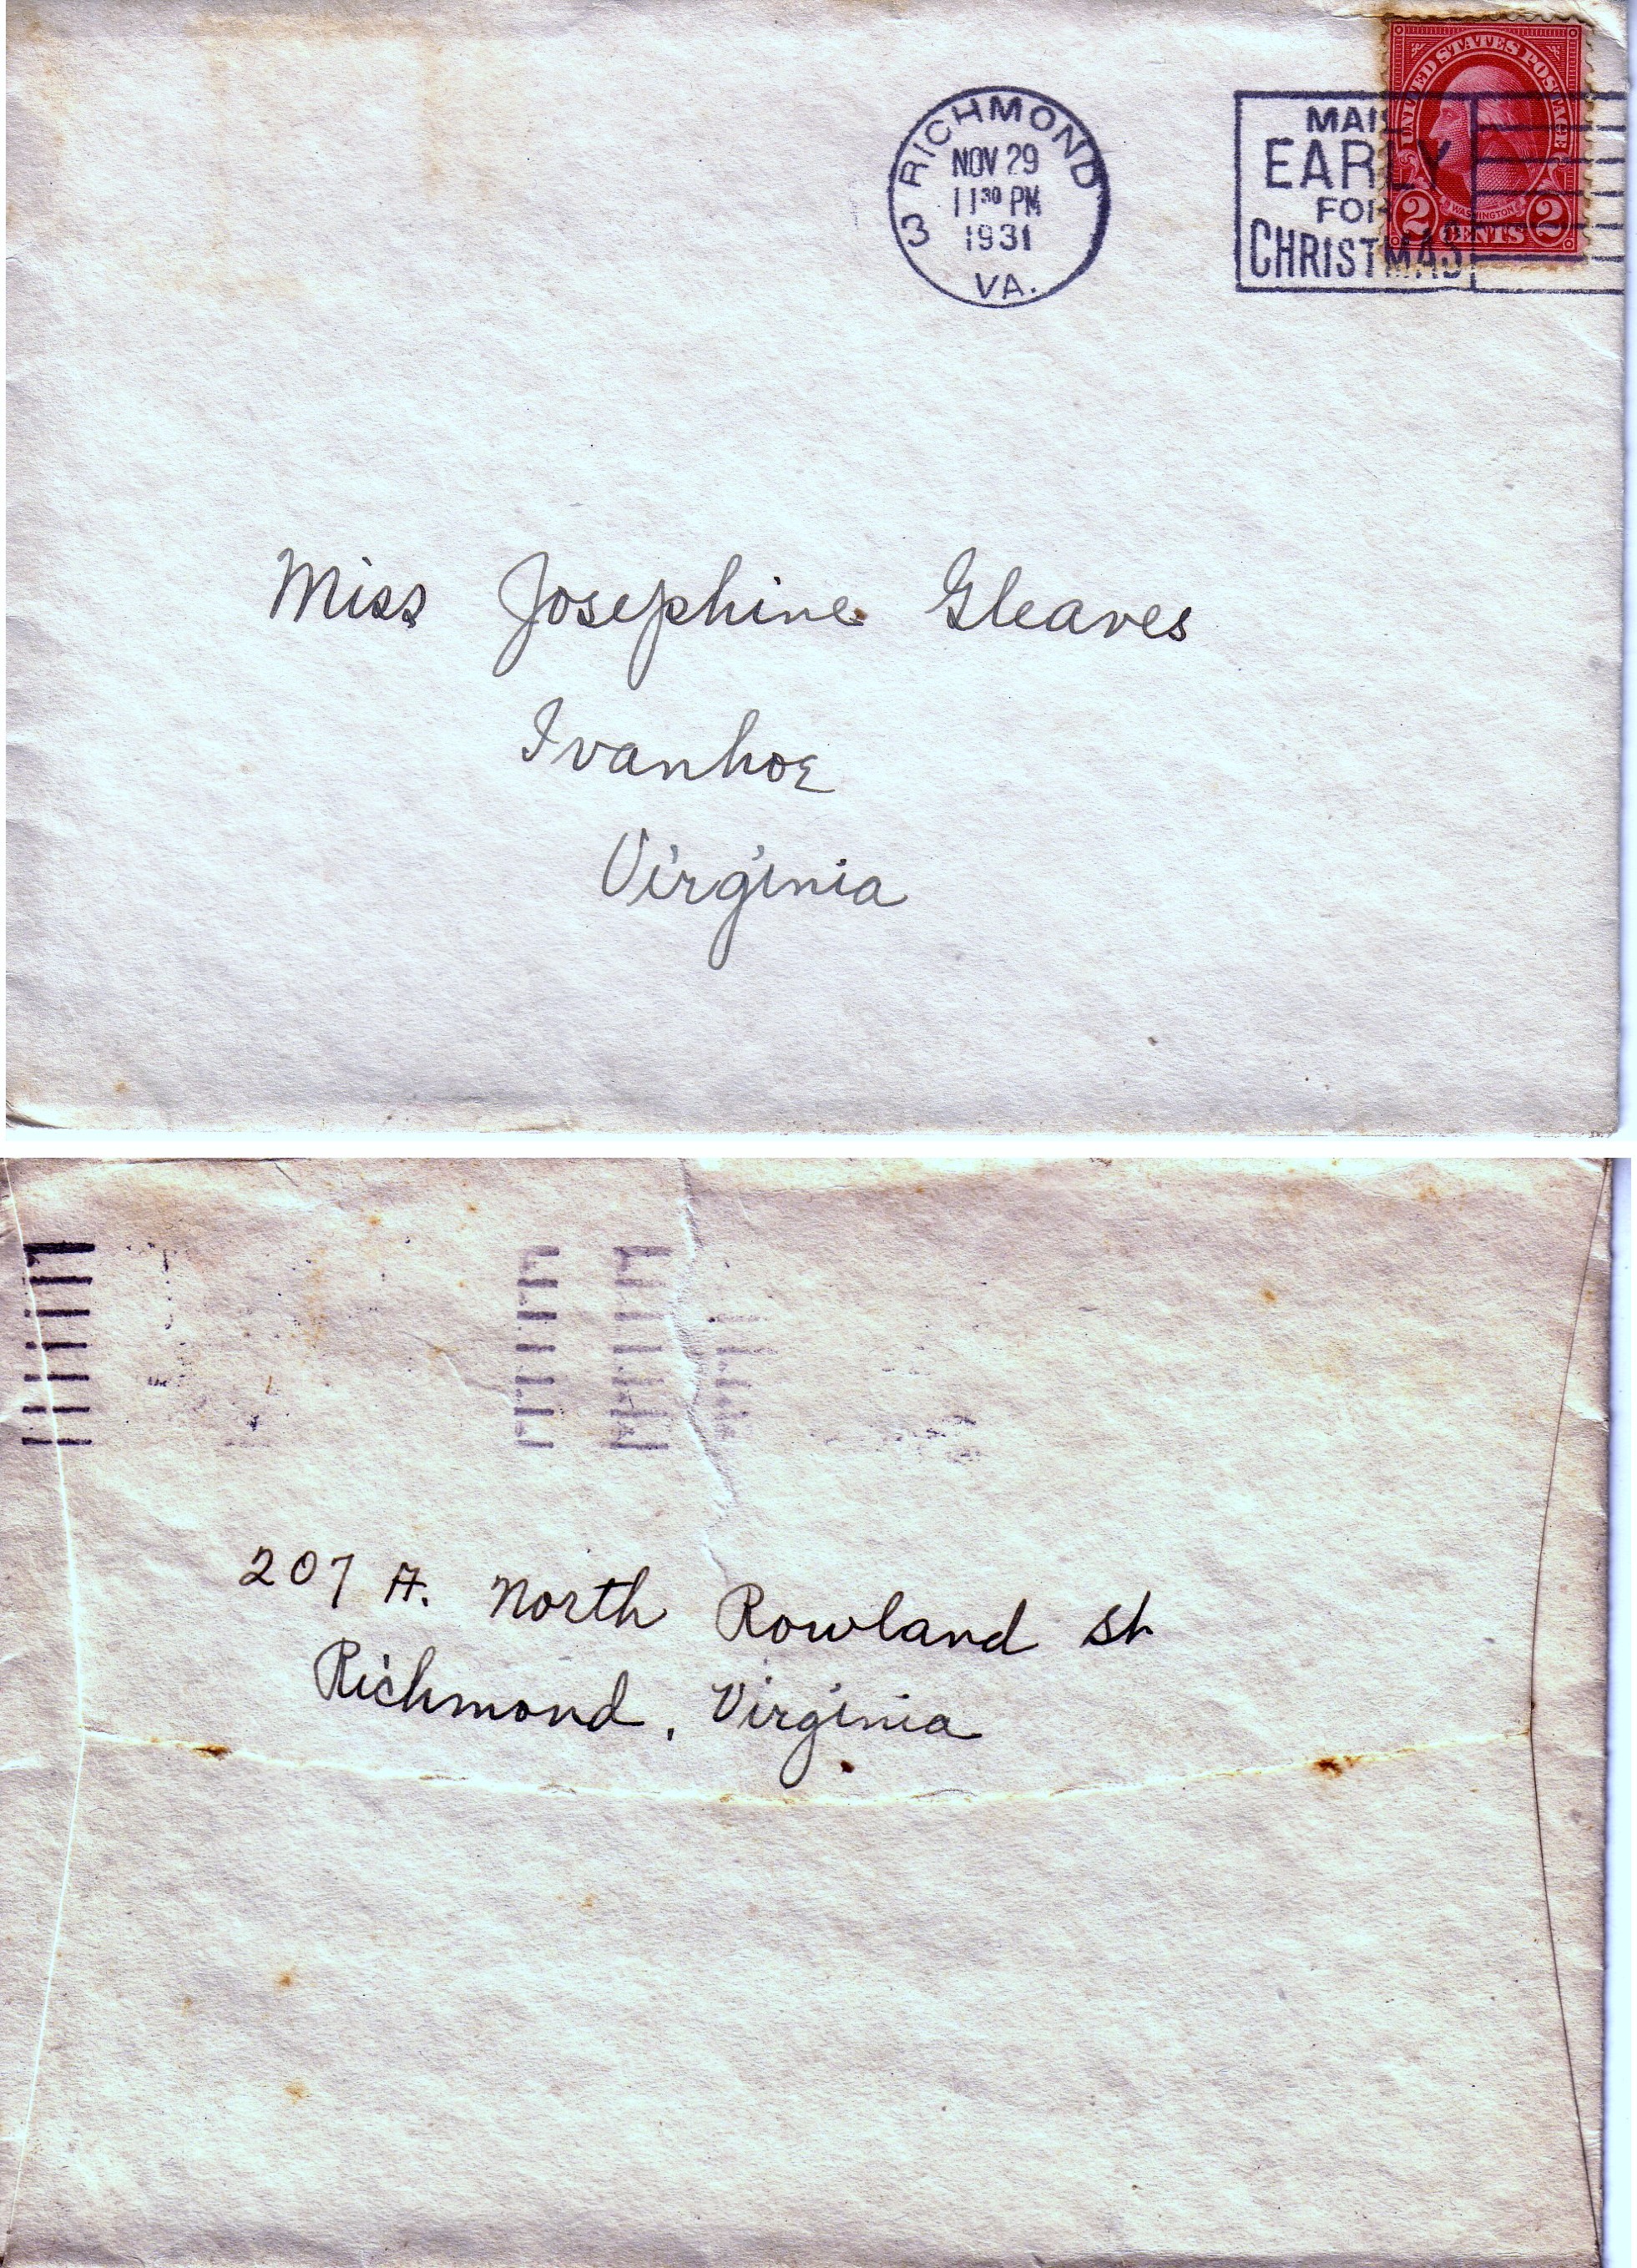 RICHMOND
NOV 29
11 30 PM
1931
3
VA.
MAIL
EARLY
FOR
CHRISTMAS
UNITED STATES POSTAGE
WASHINGTON
2 CENTS 2
Miss Josephine Gleaves
Ivanhoe
Virginia
207 A. North Rowland St
Richmond, Virginia